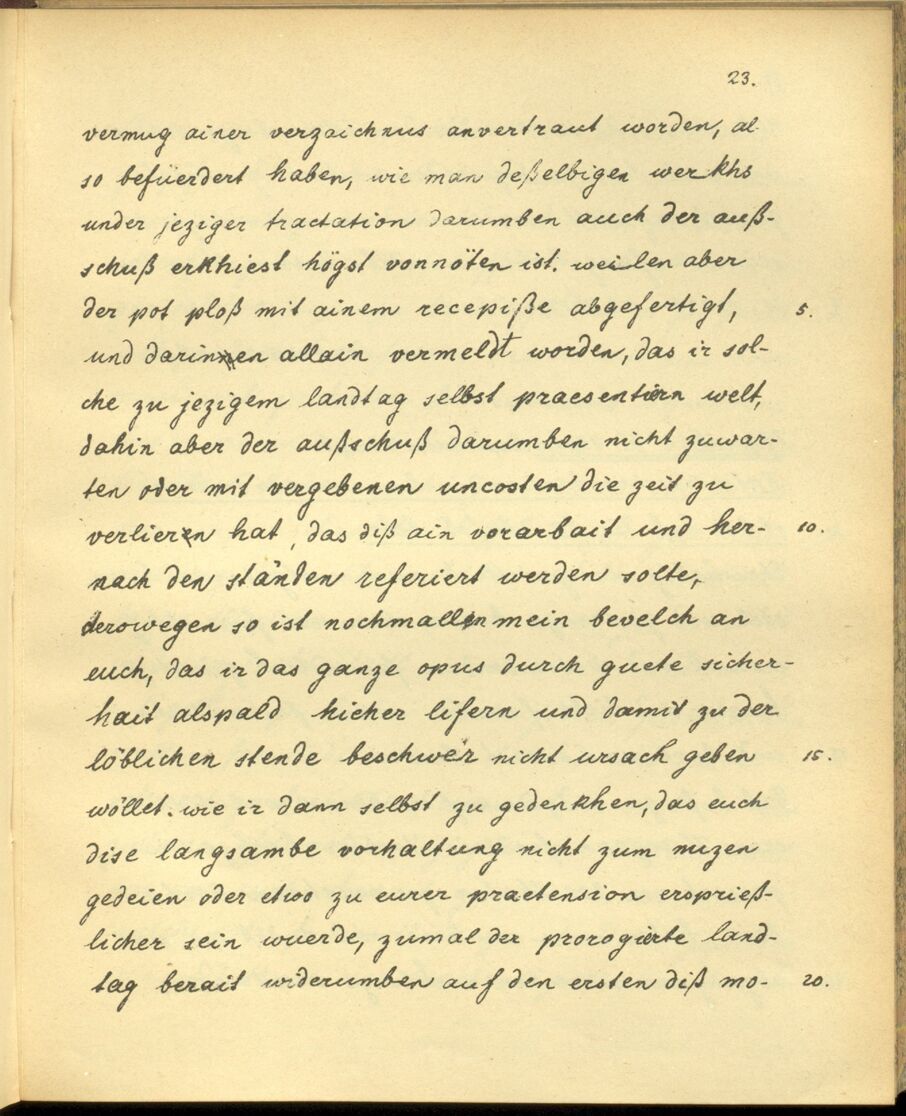 23.
vermug ainer verzaichnus anvertraut worden, al-
so befüerdert haben, wie man deßelbigen werkhs
under jeziger tractation darumben auch der auß-
schuß erkhiest högst vonnöten ist. weilen aber
der pot ploß mit ainem recepiße abgefertigt, 5.
und darinnen allain vermeldt worden, das ir sol-
che zu jezigem landtag selbst praesentiern welt,
dahin aber der außschuß darumben nicht zuwar-
ten oder mit vergebenen uncosten die zeit zu
verliern hat, das diß ain vorarbait und her- 10.
nach den ständen referiert werden solte,
derowegen so ist nochmallen mein bevelch an
euch, das ir das ganze opus durch guete sicher-
hait alspald hicher lifern und damit zu der
löblichen stende beschwer nicht ursach geben 15.
wöllet. wie ir dann selbst zu gedenkhen, das euch
dise langsambe vorhaltung nicht zum nuzen
gedeien oder etwo zu eurer praetension ersprieß-
licher sein wuerde, zumal der prorogierte land-
tag berait widerumben auf den ersten diß mo- 20.